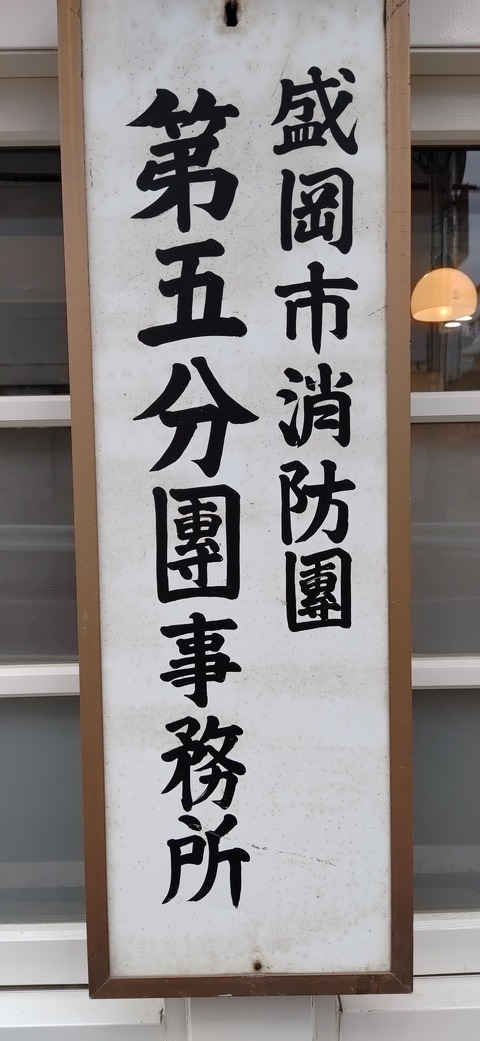 盛岡市消防團
第五分團事務所